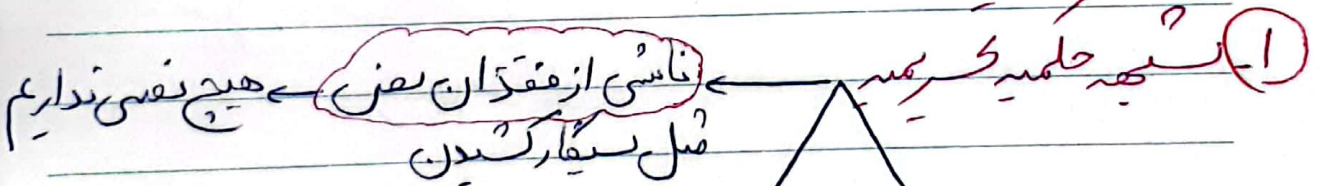 ۱- شبهه حکمیه تحریمیه ← ناشی از فقدان نص ← هیچ نصی نداریم
مثل سیگار کشیدن